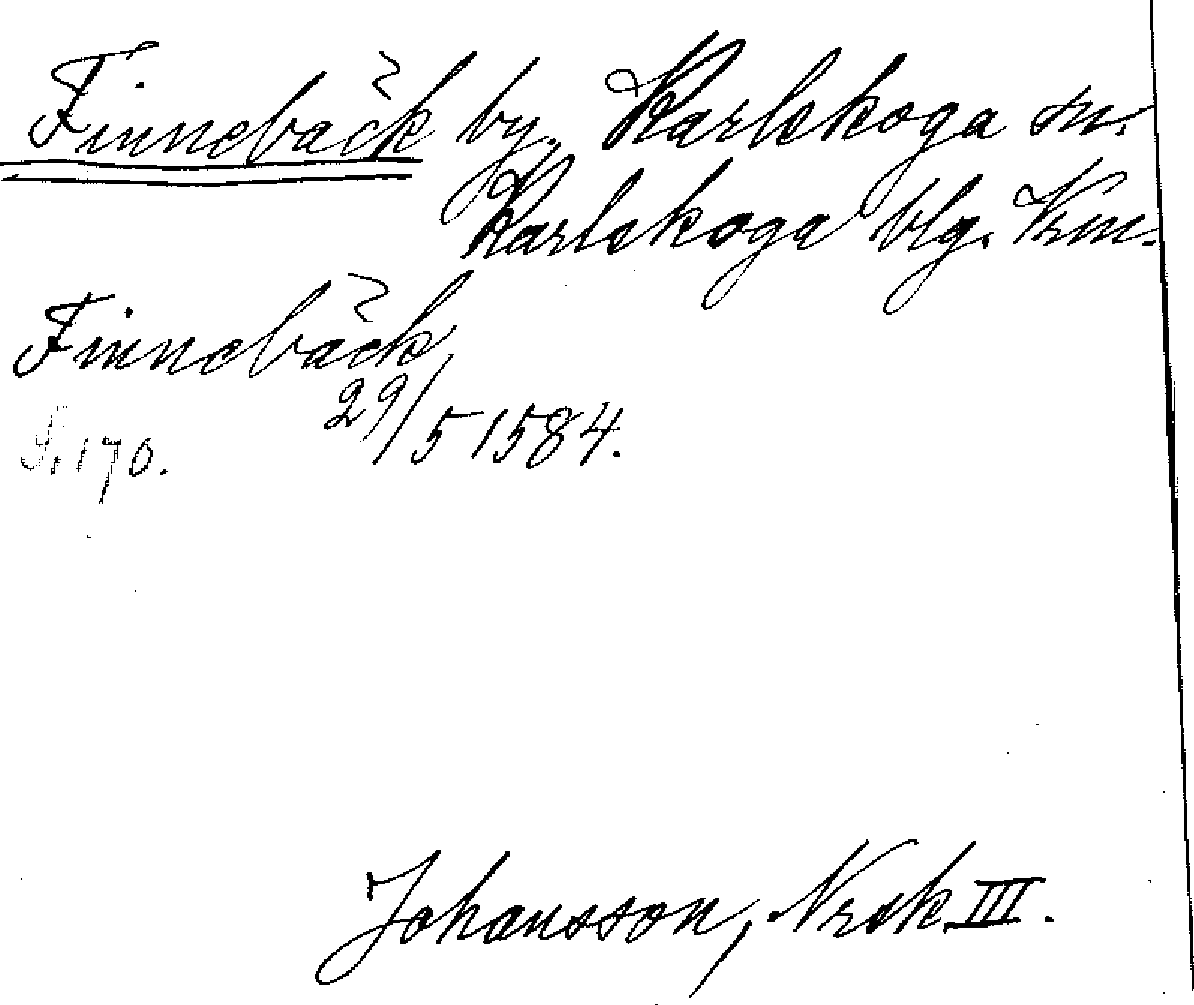 Finnebäck by, Karlskoga sn.
Karlskoga blg. Vrm.
Finnebäck
29/5 1584.
S. 170.
Johansson, Nrsk III.